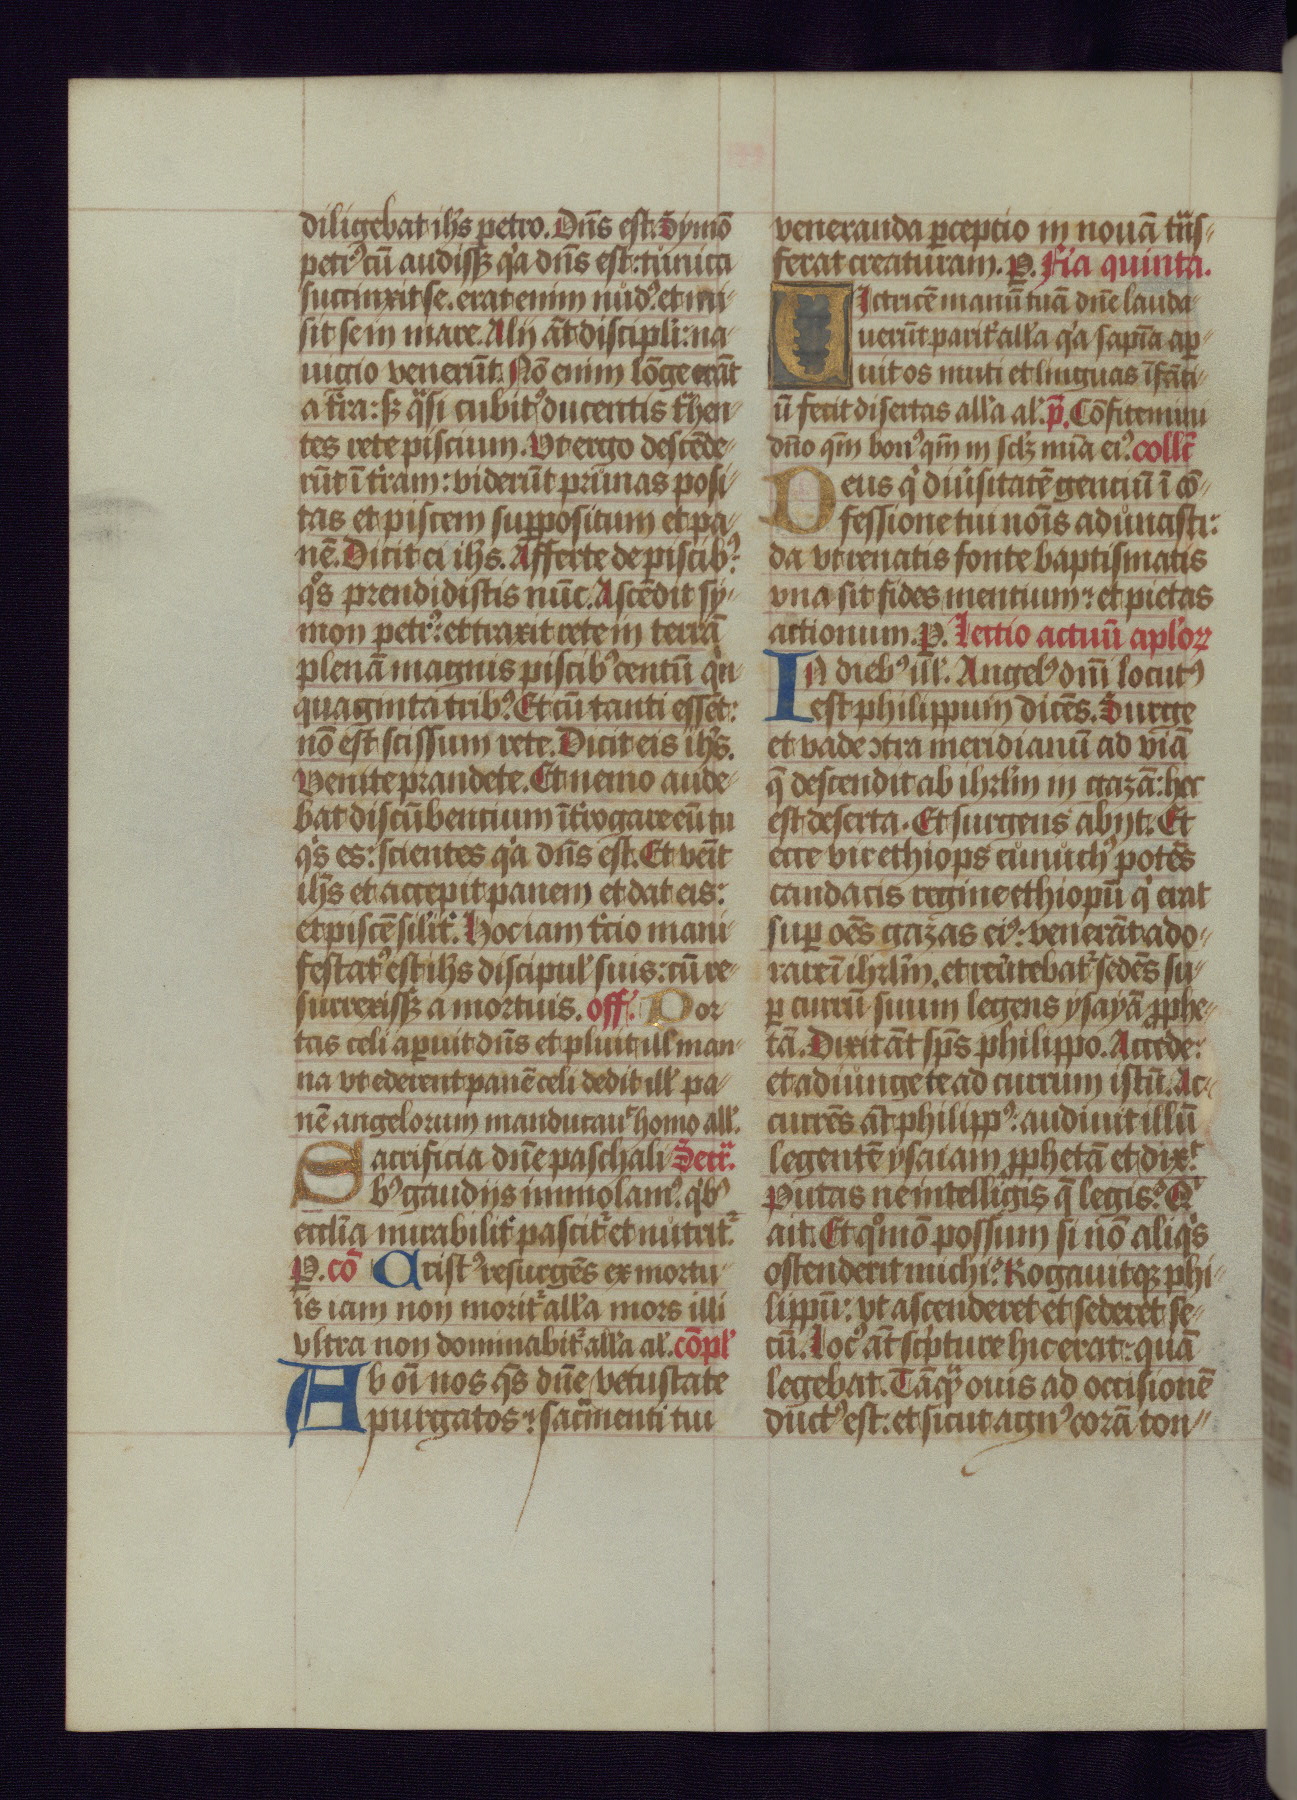 diligebat ih̄s petro. Dn̄s est. Symō
petrꝰ cū audissꝫ qꝛa dn̄s est: tunica
succinxit se. erat enim nudꝰ. et mi⸗
sit se in mare. Alij āt discipli: na⸗
uigio venerūt. Nō enim lōge erāt
a tr̄a: sꝫ qᵃsi cubitꝰ ducentis tᵃhen⸗
tes rete piscium. Vt ergo descēde⸗
rūt ī tr̄am: viderūt prunas posi⸗
tas et piscem suꝑpositum et pa⸗
nē. Dicit ei ih̄s. Afferte de piscibꝰ:
qᵒs prendidistis nūc. Ascēdit sy⸗
mon petrꝰ: et traxit rete in terrā
plenā magnis piscibꝰ centū qⁱn⸗
quaginta tribꝰ. Et cū tanti essēt:
nō est scissum rete. Dicit eis ih̄s.
Venite prandete. Et nemo aude⸗
bat discūbentium īt̄rogare eū tu
qⁱs es: scientes qꝛa dn̄s est. Et veīt
ih̄s et accepit panem et dat eis:
et piscē silīt. Hoc iam t̄cio mani⸗
festatꝰ est ih̄s discipul̓ suis: cū re⸗
surrexissꝫ a mortuis. off. Por⸗
tas celi aꝑuit dn̄s et pluit ill̓ man⸗
na vt ederent panē celi dedit ill̓ pa⸗
nē angelorum manducauͭ homo all̓.
Sacrificia dn̄e paschali Secrᵃ.
bꝰ gaudijs immolamꝰ. qⁱbꝰ
eccl̄ia mirabilit̓ pascit̓ et nutrit̓.
P. cō Cristꝰ resurgēs ex mortu⸗
is iam non morit̓ all̓a mors illi
vltra non dominabit̓ all̓a al̓. cōpl̓
Ab oī nos qs̄ dn̄e vetustate
purgatos: sacᵃmenti tui
veneranda ꝑceptio in nouā trᵃs⸗
ferat creaturam. P. Fīa quinta.
Uictricē manū tuā dn̄e lauda⸗
uerūt parit̓ all̓a qꝛa sapīa aꝑ⸗
uit os muti et linguas īfāti⸗
ū fecit disertas all̓a al̓. p̄. Cōfitemini
dn̄o qm̄ bonꝰ qm̄ in sclꝫ mīa eiꝰ. coll̄c
Deus qⁱ diūsitatē gentiū ī cō⸗
fessione tui nōis adunasti:
da vt renatis fonte baptismatis
vna sit fides mentium: et pietas
actionum. P. Lectio actuū apl̓oꝝ
In diebꝰ ill̓. Angelꝰ dn̄i locutꝰ
est philippum dicēs. Surge
et vade ↄtra meridianū ad viā
q̄ descendit ab ihrl̄m in gazā: hec
est deserta. Et surgens abijt. Et
ecce vir ethiops eunuchꝰ potēs
candacis regine ethiopū qⁱ erat
suꝑ oēs gazas eiꝰ: venerāt ado⸗
rare ī ihrl̄m. et reūtebat̓ sedēs su⸗
ꝑ currū suum legens ysayā ꝓphe⸗
tā. Dixit āt sp̄s philippo. Accede:
et adiunge te ad currum istū. Ac⸗
currēs āt philippꝰ: audiuit illū
legentē ysaiam ꝓphetā et dixͭ.
Putas ne intelligis q̄ legis? Qⁱ
ait. Et qᵒmō possum si nō aliqⁱs
ostenderit michi? Rogauitqꝫ phi⸗
lippū: vt ascenderet et sederet se⸗
cū. Locꝰ āt scⁱpture hic erat: quā
legebat. Tāqᵃꝫ ouis ad occisionē
ductꝰ est: et sicut agnꝰ corā ton⸗